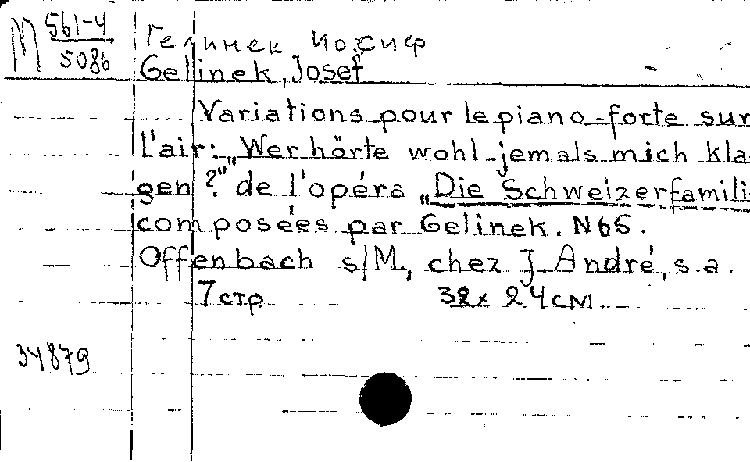 М 561-4
5086
Гелинек Иосиф
Gelinek, Josef
Variations pour le piano-forte sur
l'air: „Wer hörte wohl jemals mich kla
gen?" de l'opéra „Die Schweizerfamili
composées par Gelinek. N 65.
Offenbach s/M., chez J. André, s.a.
7 стр 32 x 24 см
34879